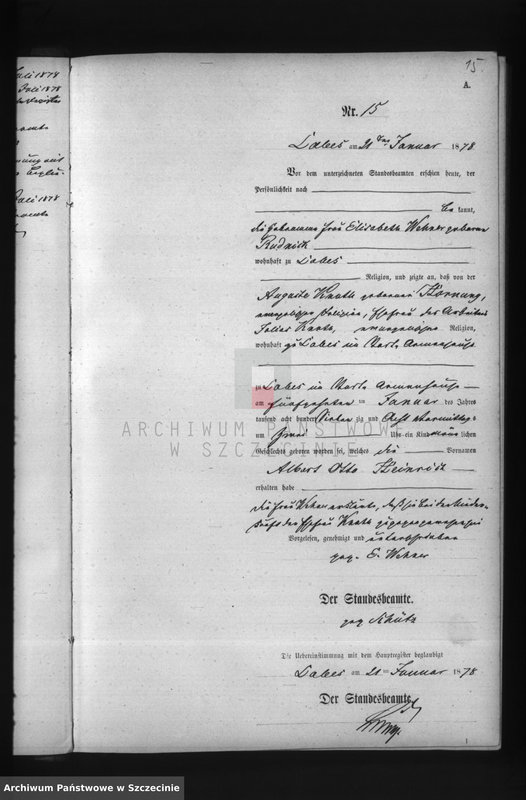 15.
A.
Nr. 15
Labes am 21ten Januar 1878
Vor dem unterzeichneten Standesbeamten erschien heute, der
Persönlichkeit nach
be kannt,
die Hebamme Frau Elisabeth Wehner geborene
Rudnick
wohnhaft zu Labes
Religion, und zeigte an, daß von der
Auguste Knuth geborenen Hornung,
evangelischer Religion, Ehefrau des Arbeiters
Knuth, evangelischer Religion,
wohnhaft zu Labes im Armenhause
zu Labes im Armenhause
am fünfzehnten ten Januar des Jahres
tausend acht hundert sieben zig und Acht Vormittags
um Uhr ein Kind männ lichen
Geschlechts geboren worden sei, welches die Vornamen
Albert Otto Heinrich
erhalten habe
die Frau Wehner erklärte, daß sie bei der Nieder-
kunft der Ehefrau Knuth zugegen gewesen sei
Vorgelesen, genehmigt und unterschrieben
gez. E. Wehner
Der Standesbeamte.
gez Schütz
Die Uebereinstimmung mit dem Hauptregister beglaubigt
Labes am 21ten Januar 1878
Der Standesbeamte
ARCHIWUM PAŃSTWOWE
W SZCZECINIE
Archiwum Państwowe w Szczecinie